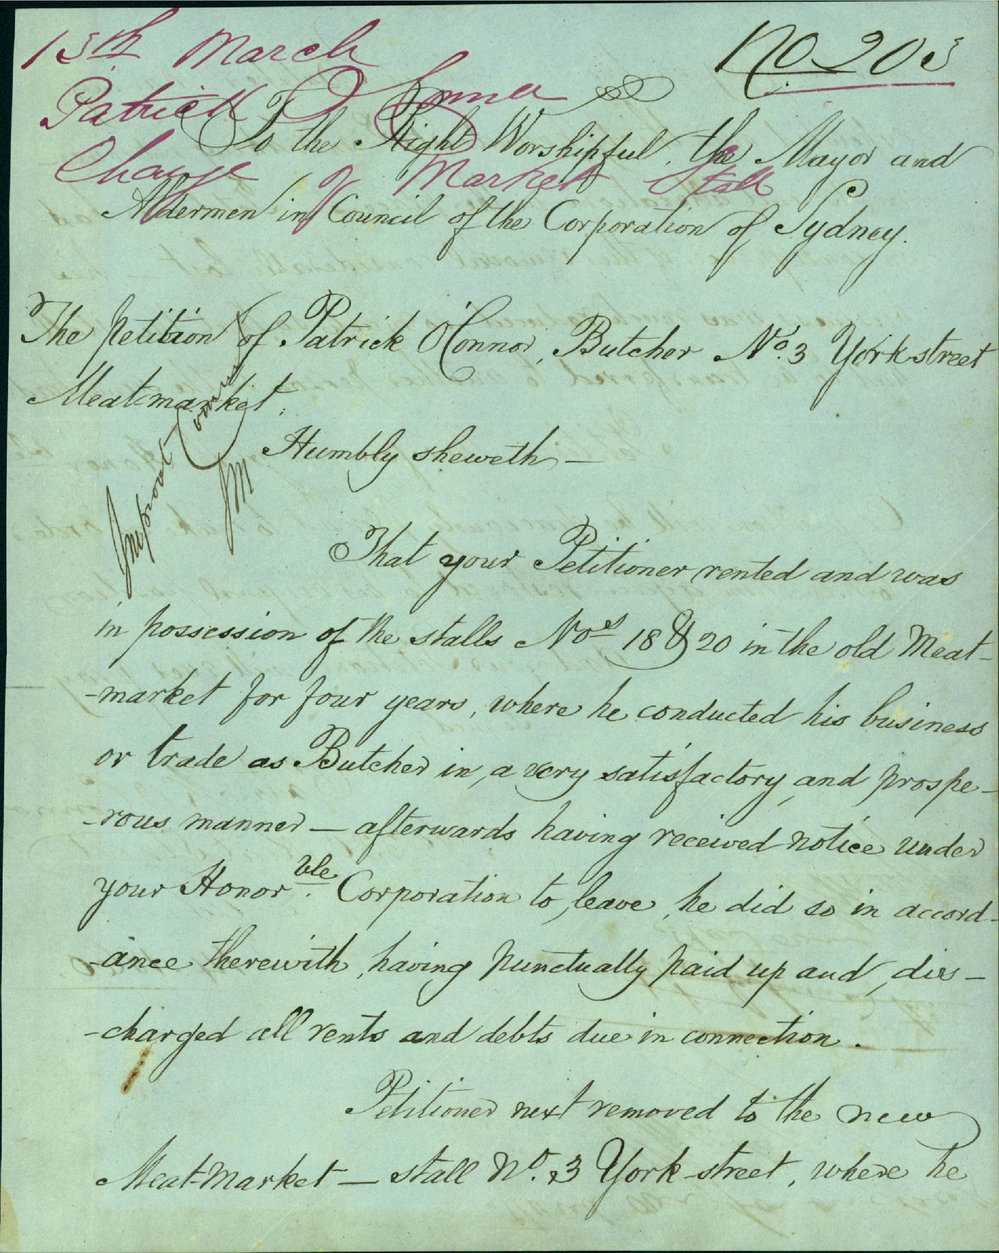 15th March
No 205
Patrick O Conner
To the Right Worshipful, the Mayor and
Change of Market Stall
Aldermen in Council of the Corporation of Sydney.
The Petition of Patrick O'Connor, Butcher No. 3 York street
Meat-market.
Improvt Committee
JM
Humbly sheweth —
That your Petitioner rented and was
in possession of the stalls Nos 18 & 20 in the old Meat-
-market for four years, where he conducted his business
or trade as Butcher in, a very satisfactory, and prospe-
-rous manner — afterwards having received notice under
your Honorble Corporation to leave, he did so in accord-
-ance therewith, having punctually paid up and, dis-
-charged all rents and debts due in connection.
Petitioner next removed to the new
Meat-Market — stall No. 3 York-street, where he